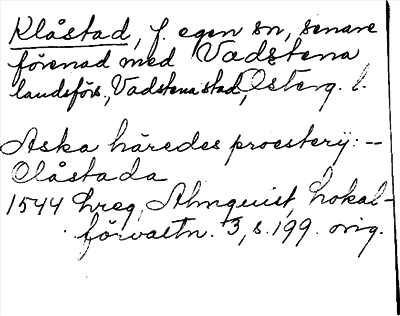 Klåstad, f. egen sn, senare
förenad med Vadstena
landsförs., Vadstena stad, Österg. l.
Aska häredes proestery: --
Clåstada
1544 hreg, Almquist, Lokal-
förvaltn. 3, s. 199. orig.